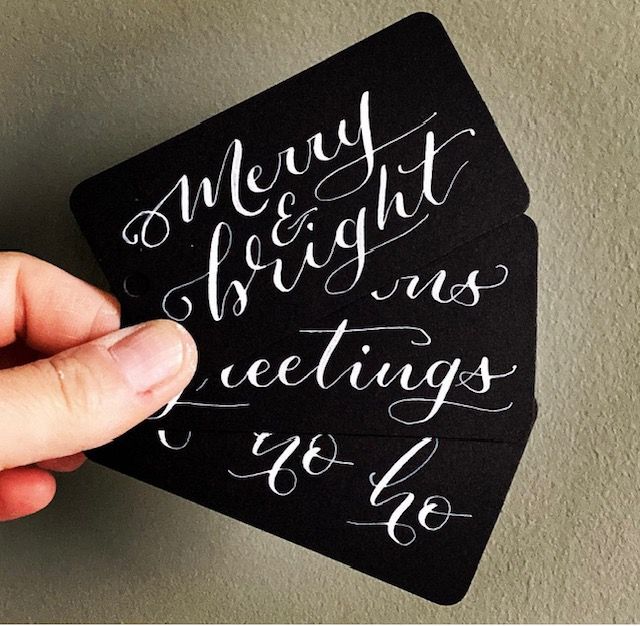 Merry
&
bright
ns
reetings
ho ho